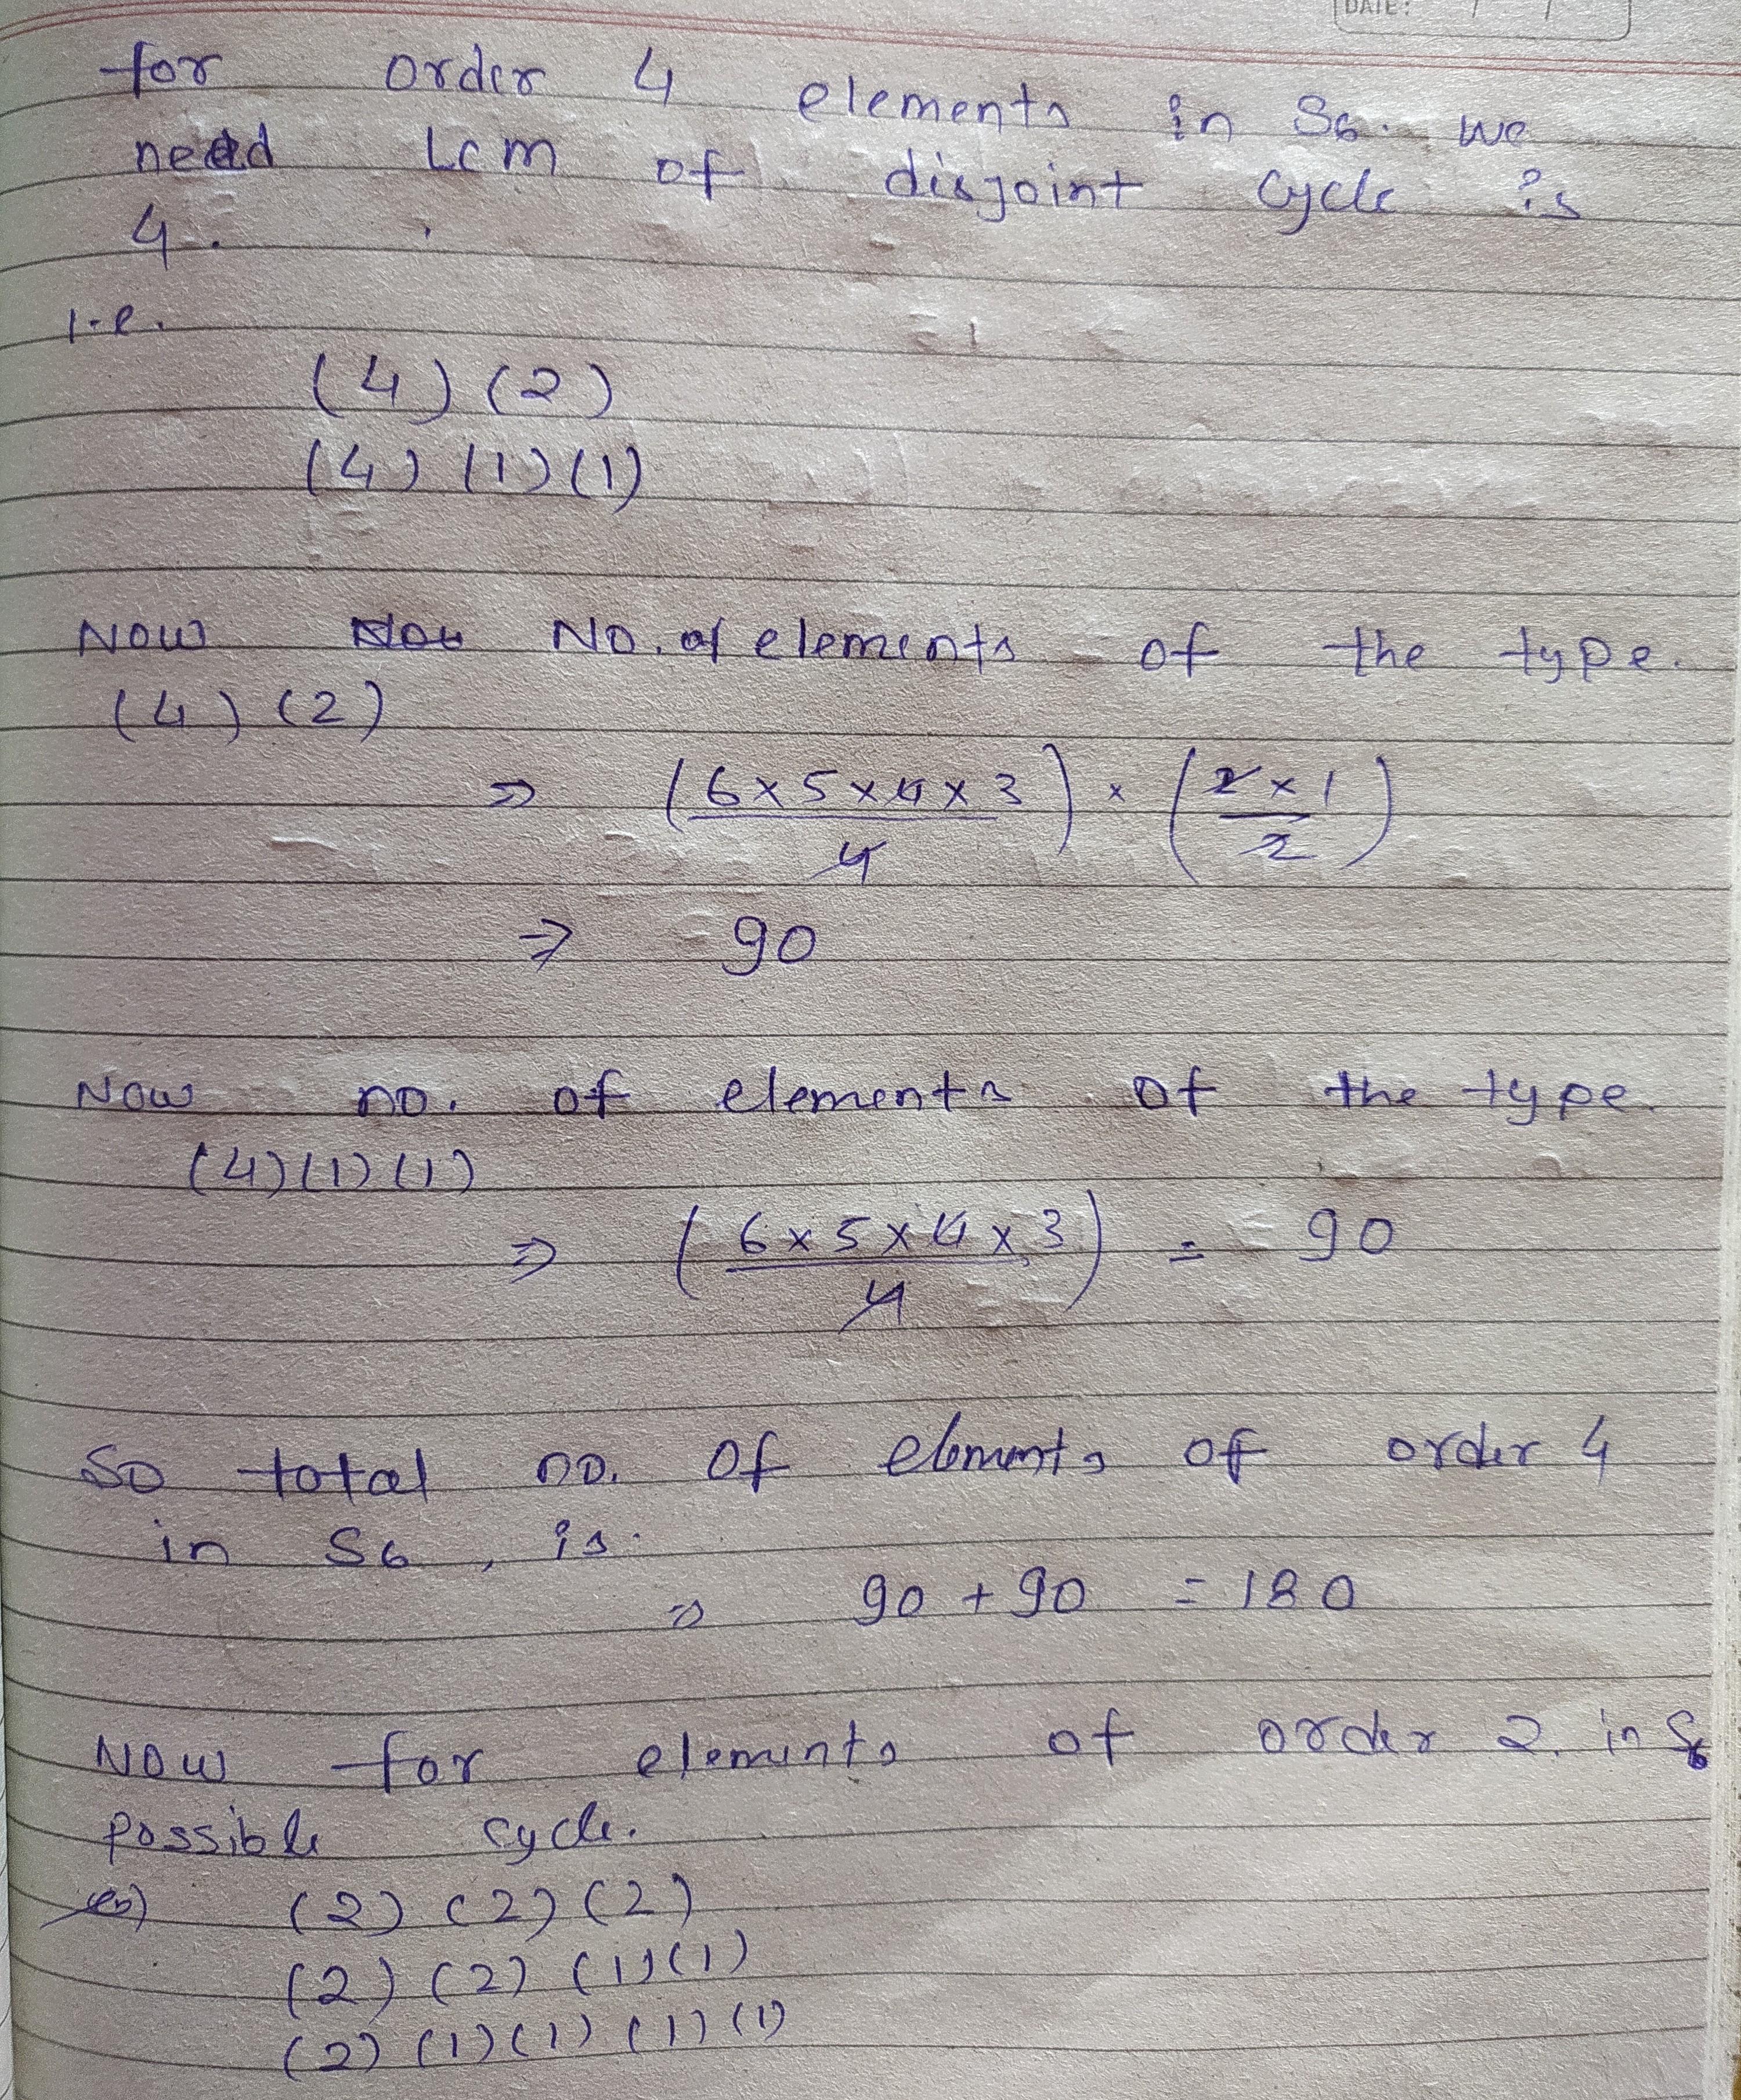 DATE: / /
for order 4 elements in S6. we
need Lcm of disjoint cycle is
4.
i.e.
(4) (2)
(4) (1) (1)
Now No. of elements of the type.
(4) (2)
⇒ (6×5×4×3 / 4) × (2×1 / 2)
⇒ 90
Now no. of elements of the type.
(4)(1)(1)
⇒ (6×5×4×3 / 4) = 90
So total no. of elements of order 4
in S6, is.
⇒ 90 + 90 = 180
Now for elements of order 2. in S6
possible cycle.
(2) (2) (2)
(2) (2) (1)(1)
(2) (1)(1) (1) (1)